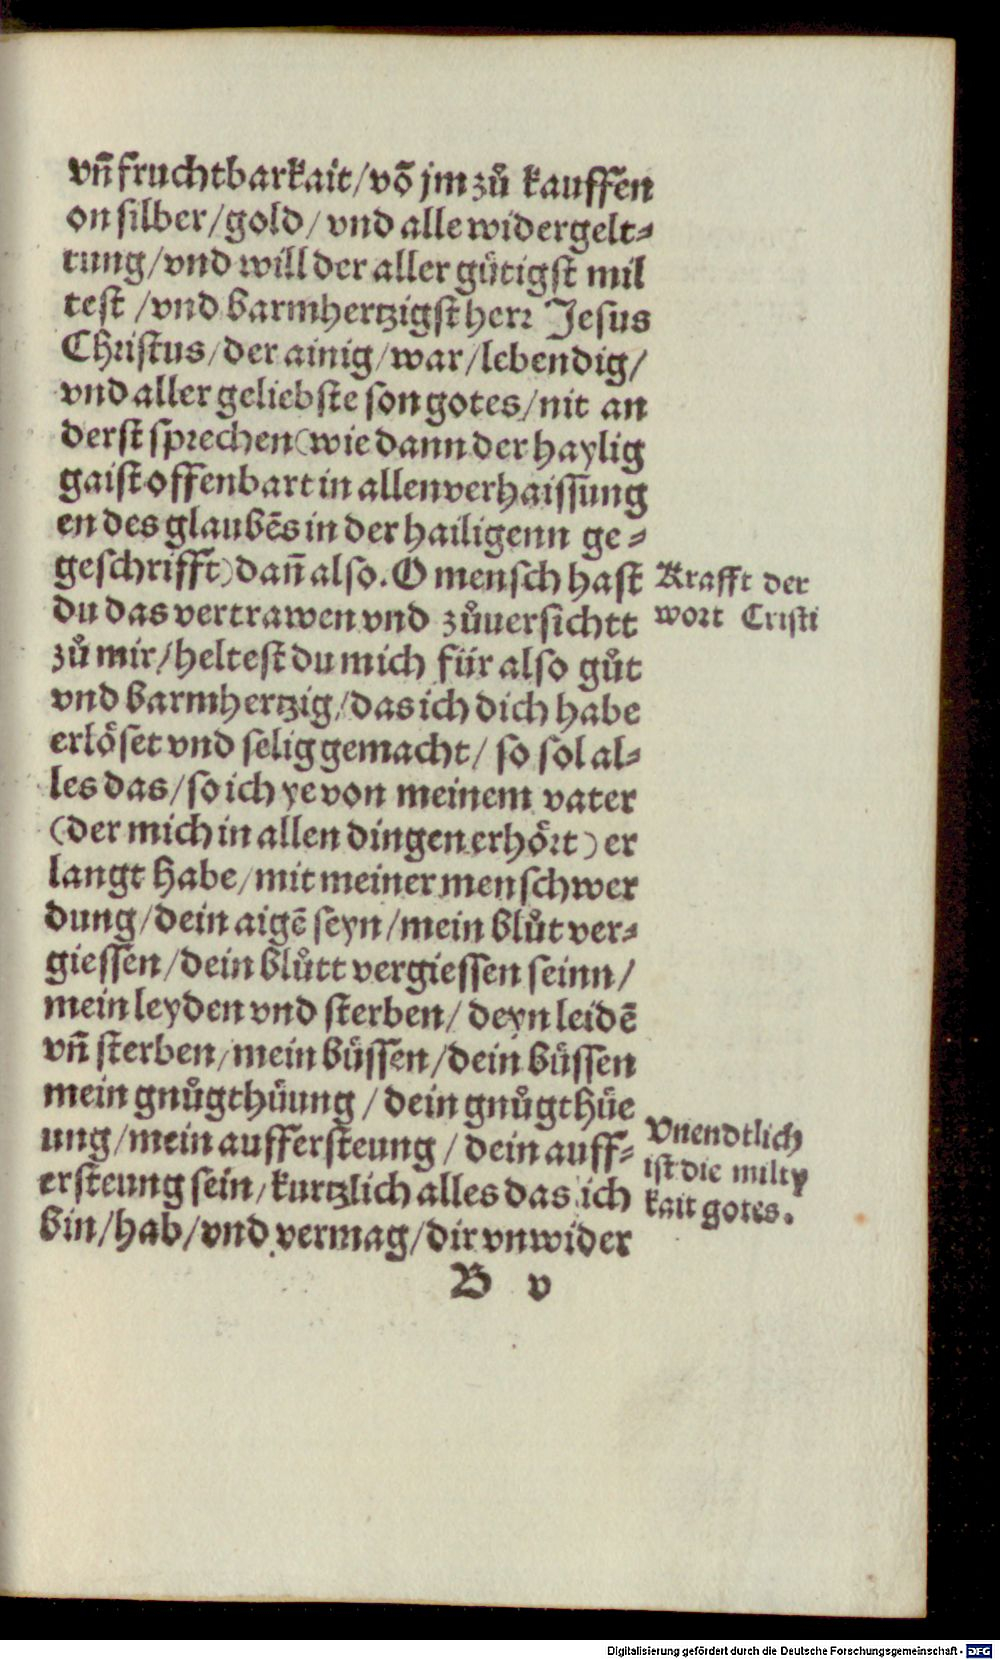 vñ fruchtbarkait/võ jm zů kauffen
on silber/gold/ vnd alle widergelt⸗
tung/vnd will der aller gütigst mil
test /vnd barmhertzigst herr Jesus
Christus/der ainig/war/lebendig/
vnd aller geliebste son gotes/nit an
derst sprechen(wie dann der haylig
gaist offenbart in allen verhaissung
en des glaubēs in der hailigenn ge⸗
geschrifft) dañ also. O mensch hast
Krafft der
du das vertrawen vnd zůuersichtt
wort Cristi
zů mir/heltest du mich für also gůt
vnd barmhertzig/das ich dich habe
erlöset vnd selig gemacht/ so sol al⸗
les das/so ich ye von meinem vater
(der mich in allen dingen erhört) er
langt habe/mit meiner menschwer
dung/dein aigē seyn/mein blůt ver⸗
giessen/dein blůtt vergiessen seinn/
mein leyden vnd sterben/ deyn leidē
vñ sterben/mein büssen/dein büssen
mein gnůgthüung / dein gnůgthüe
ung/mein aufferſteung / dein auff⸗
ersteung sein/kurtzlich alles das ich
bin/hab/vnd vermag/dir vnwider
Vnendtlich
ist die milty
kait gotes.
B v
Digitalisierung gefördert durch die Deutsche Forschungsgemeinschaft - DFG